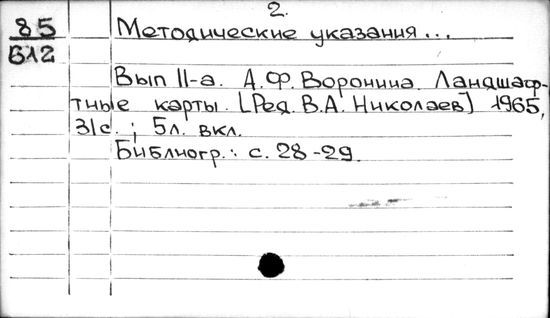 2.
85 Методические указания...
Б12
Вып 11-а. А.Ф. Воронина. Ландшаф-
тные карты. [Ред. В.А. Николаев] 1965,
31с. ; 5л. вкл.
Библиогр.: с. 28-29.